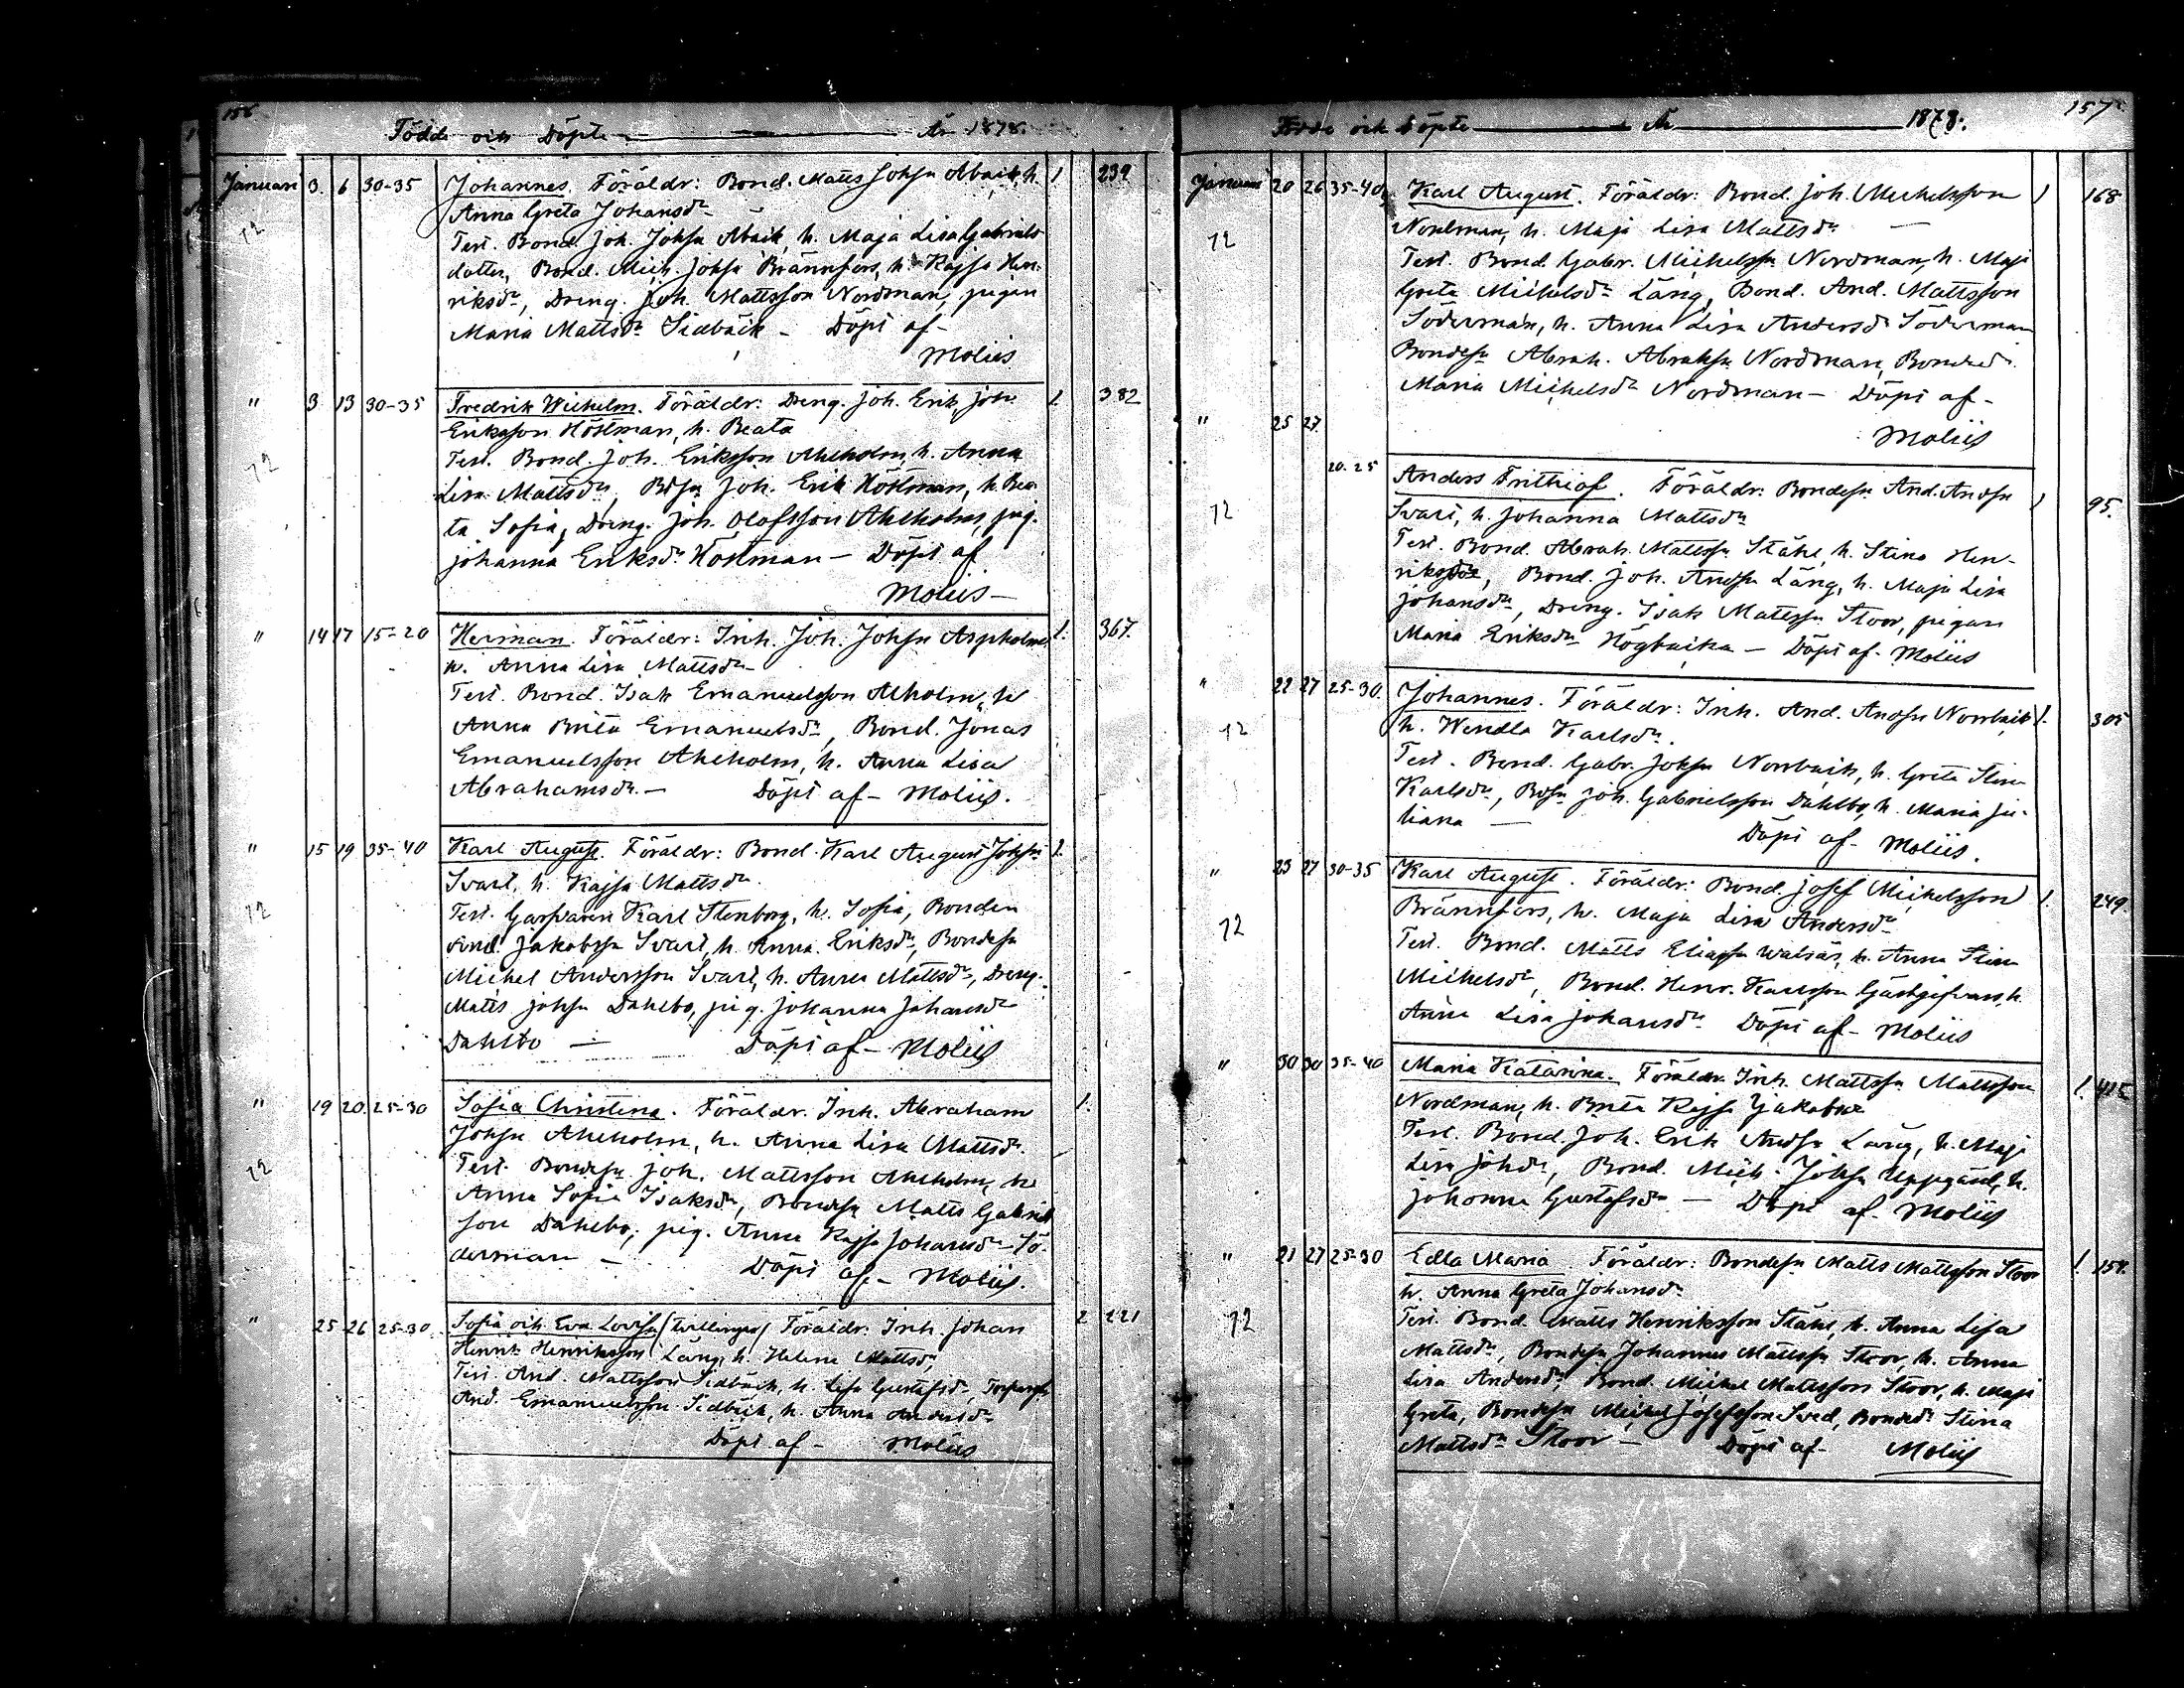 156
Födde och Döpte År 1878.
Januari 3. 6 30-35 Johannes. Föräldr: Bond. Matts Johsn Åbäck, h. 1 239
Anna Greta Johansdr
72
Test. Bond. Joh. Johsn Åbäck, h. Maja Lisa Gabriels
dotter, Bond. Mich. Johsn Brännfors, h. Kajsa Hen-
riksdr, Dreng. Joh. Mattsson Nordman, pigan
Maria Mattsdr Sidbäck - Döpt af -
Moliis
" 3 13 30-35 Fredrik Wilhelm. Föräldr: Dreng. Joh. Erik Joh. 1 382
Eriksson Höstman, h. Beata
72
Test. Bond. Joh. Eriksson Ahlholm, h. Anna
Lisa Mattsdr, Bdsn Joh. Erik Höstman, h. Bea-
ta Sofia, Dreng. Joh. Olofsson Ahlholm, pig.
Johanna Eriksdr Höstman - Döpt af
Moliis -
" 14 17 15-20 Herman. Föräldr: Inh. Joh. Johsn Aspholm 1. 367.
h. Anna Lisa Mattsdr -
Test. Bond. Isak Emanuelsson Alholm, h
Anna Brita Emanuelsdr, Bond. Jonas
Emanuelsson Ahlholm, h. Anna Lisa
Abrahamsdr. - Döpt af - Moliis.
" 15 19 35-40 Karl August. Föräldr: Bond. Karl August Johsn 1.
Svart, h. Kajsa Mattsdr.
72
Test. Garfvaren Karl Stenborg, h. Sofia, Bonden
And. Jakobsn Svart, h. Anna Eriksdr, Bondesn
Michel Andersson Svart, h. Anna Mattsdr, Dreng.
Matts Johsn Dahlbo, pig. Johanna Johansdr
Dahlbo - Döpt af - Moliis
" 19 20 25-30 Sofia Christina. Föräldr. Inh. Abraham 1.
Johsn Ahlholm, h. Anna Lisa Mattsdr.
72
Test. Bondesn Joh. Mattsson Ahlholm, h
Anna Sofia Isaksdr, Bondesn Matts Gabriels
son Dahlbo, pig. Anna Kajsa Johansdr Sö-
derman - Döpt af - Moliis.
" 25 26 25-30 Sofia och Eva Lovisa (tvillingar) Föräldr: Inh. Johan 2 221
Henrik Henriksson Läng, h. Helena Mattsdr,
Test. And. Mattsson Sidbäck, h. Lisa Gustafsdr,
And. Emanuelsson Sidbäck, h. Anna Andersdr
Döpt af - Moliis
157
Födde och Döpte År 1878.
Januari 20 26 35-40 Karl August. Föräldr: Bond. Joh. Michelsson 1 168
Nordman, h. Maja Lisa Mattsdr
72
Test. Bond. Gabr. Michelsn Nordman, h. Maja
Greta Michelsdr Läng, Bond. And. Mattsson
Söderman, h. Anna Lisa Andersdr Söderman
Bondesn Abrah. Abrahsn Nordman, Bondedr.
Maria Michelsdr Nordman - Döpt af -
Moliis
" 25 27 20-25 Anders Frithiof. Föräldr: Bondesn And. Andsn 1 95.
Svart, h. Johanna Mattsdr
72
Test. Bond. Abrah. Mattssn Ståhl, h. Stina Hen-
riksdr, Bond. Joh. Andsn Läng, h. Maja Lisa
Johansdr, Dreng. Isak Mattssn Stoor, pigan
Maria Eriksdr Högbacka - Döpt af - Moliis
" 22 27 25-30. Johannes. Föräldr: Inh. And. Andsn Norrbäck 1. 305
h. Wendla Karlsdr.
72
Test. Bond. Gabr. Johsn Norrbäck, h. Greta Stina
Karlsdr, Bdsn Joh. Gabrielsson Dahlbo, h. Maria Ju-
liana - Döpt af - Moliis.
" 23 27 30-35 Karl August. Föräldr: Bond. Josef Michelsson 1. 249.
Brännfors, h. Maja Lisa Andersdr
72
Test. Bond. Matts Eliassn Walsäs, h. Anna Stina
Michelsdr, Bond. Henr. Karlsson Gästgifvars, h.
Anna Lisa Johansdr Döpt af - Moliis
" 30 30 35-40 Maria Katarina. Föräldr. Inh. Mattssn Mattsson 1. 415
Nordman, h. Brita Kajsa Jakobsdr
Test. Bond. Joh. Erik Andsn Läng, h. Maja
Lisa Johdr, Bond. Mich. Johsn Uppgård, h.
Johanna Gustafsdr - Döpt af - Moliis
" 21 27 25-30 Edla Maria. Föräldr: Bondesn Matts Mattsson Stoor 1. 154.
h. Anna Greta Johansdr
72
Test. Bond. Matts Henriksson Ståhl, h. Anna Lisa
Mattsdr, Bondesn Johannes Mattssn Stoor, h. Anna
Lisa Andersdr, Bond. Michel Mattsson Stoor, h. Maja
Greta, Bondesn Michel Josefsson Sved, Bondedr Stina
Mattsdr Stoor - Döpt af - Moliis